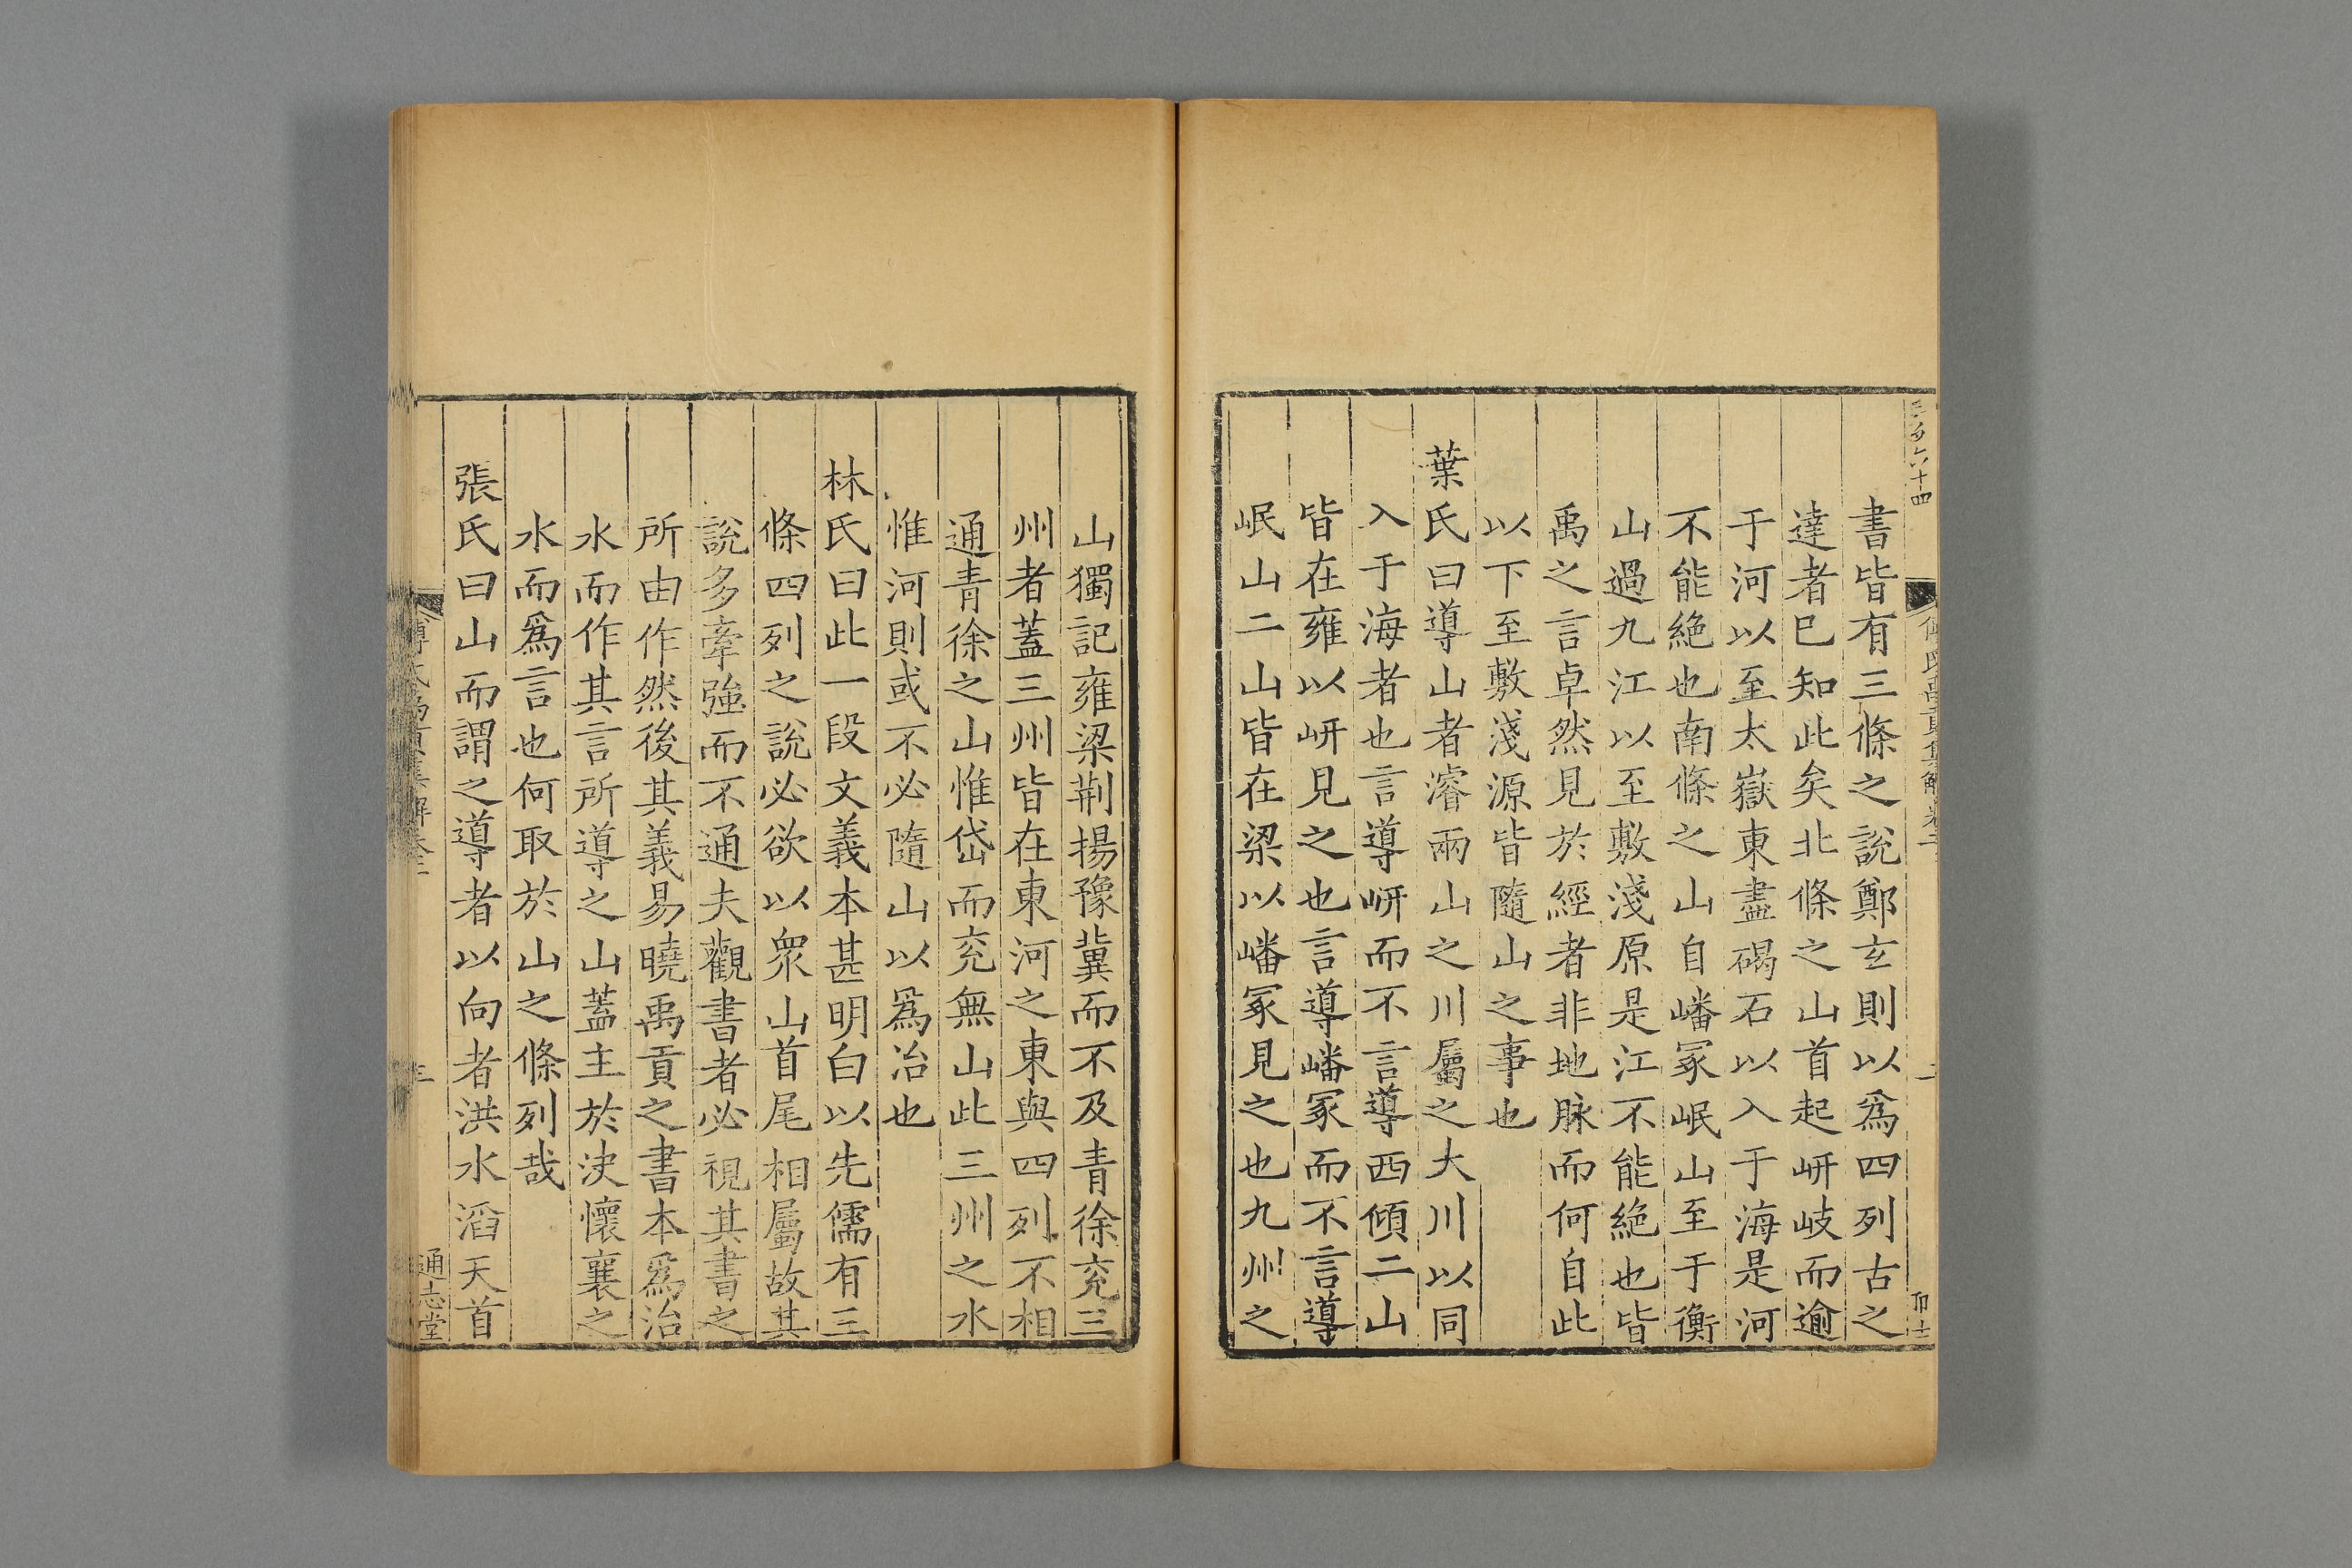 書皆有三條之說鄭玄則以爲四列古之
達者巳知此矣北條之山首起岍岐而逾
于河以至太嶽東盡碣石以入于海是河
不能絶也南條之山自嶓冢岷山至于衡
山過九江以至敷淺原是江不能絶也皆
禹之言卓然見於經者非地脉而何自此
以下至敷淺源皆隨山之事也
葉氏曰導山者濬兩山之川屬之大川以同
入于海者也言導岍而不言導西傾二山
皆在雍以岍見之也言導嶓冢而不言導
岷山二山皆在梁以嶓冢見之也九州之
山獨記雍梁荆揚豫冀而不及青徐兖三
州者蓋三州皆在東河之東與四列不相
通青徐之山惟岱而兖無山此三州之水
惟河則或不必隨山以爲冶也
林氏曰此一段文義本甚明白以先儒有三
條四列之說必欲以衆山首尾相屬故其
說多牽強而不通夫觀書者必視其書之
所由作然後其義易曉禹貢之書本爲治
水而作其言所導之山蓋主於决懷襄之
水而爲言也何取於山之條列哉
張氏曰山而謂之導者以向者洪水滔天首
通志堂